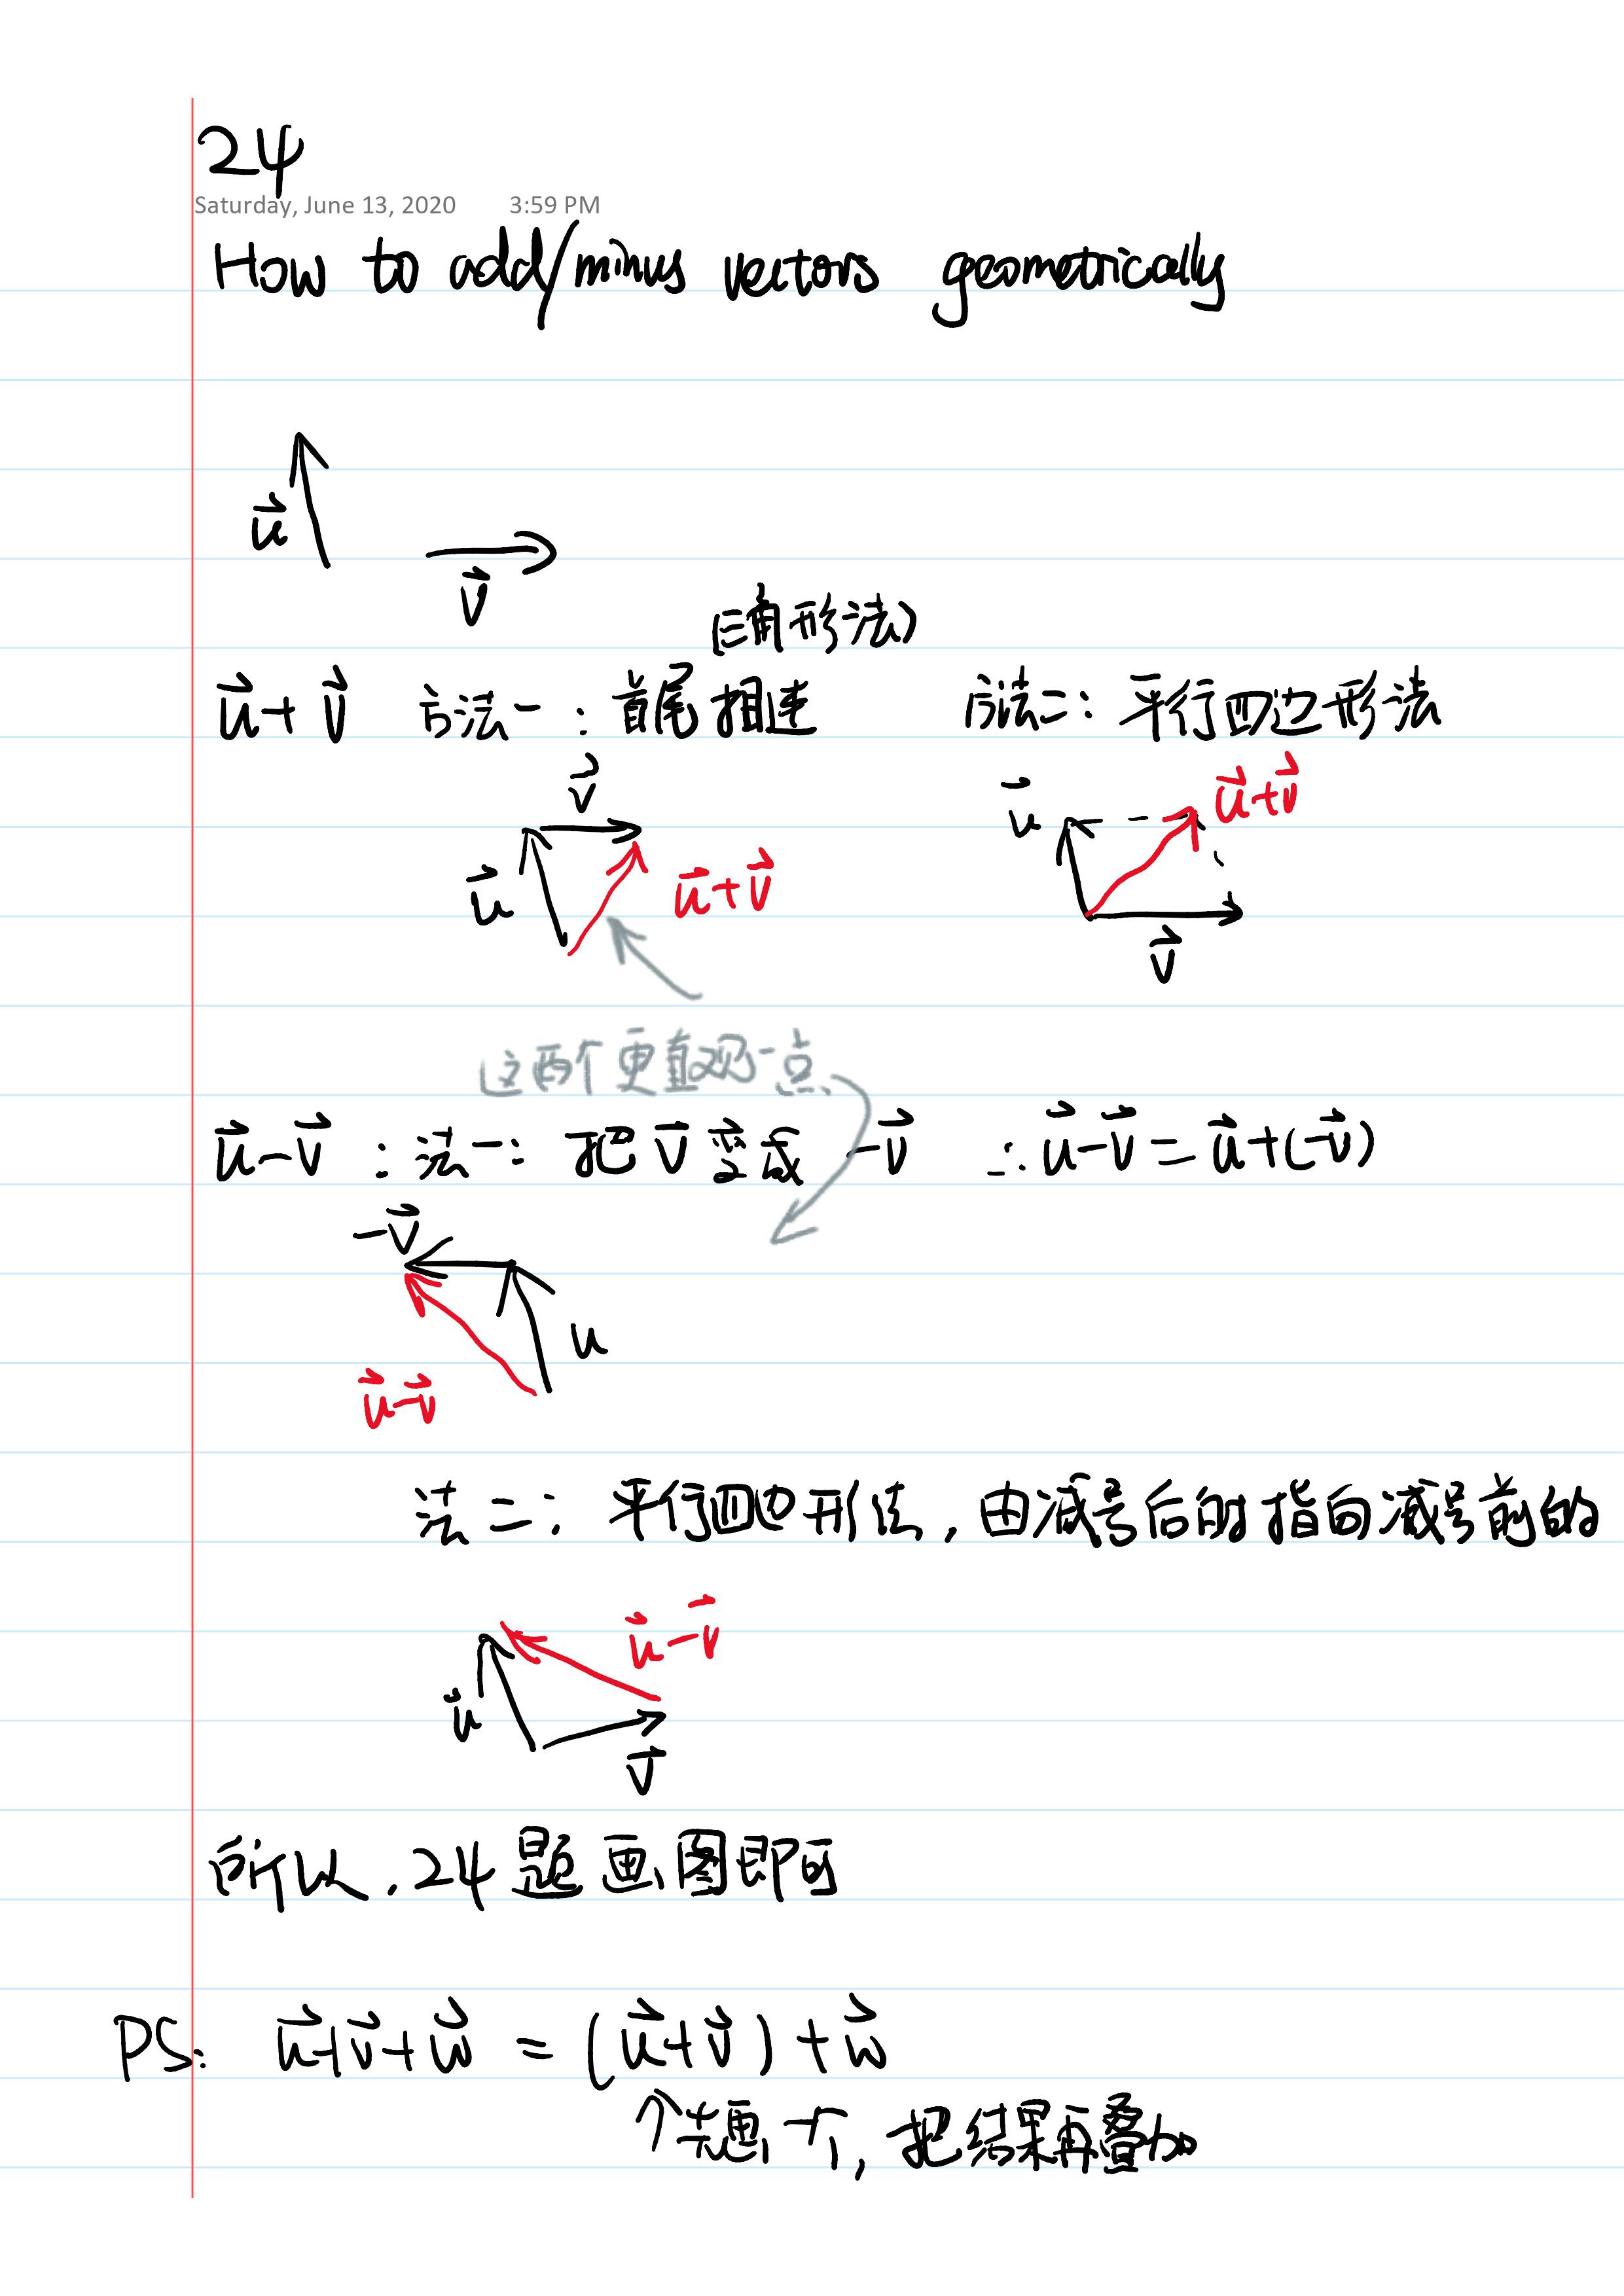 24
Saturday, June 13, 2020 3:59 PM
How to add/minus vectors geometrically
u⃗
v⃗
(三角形法)
u⃗+v⃗ 方法一：首尾相连 方法二：平行四边形法
v⃗
u⃗
u⃗+v⃗
u⃗
u⃗+v⃗
v⃗
这两个更直观一点
u⃗-v⃗：法一：把v⃗变成 -v⃗ ∴u⃗-v⃗=u⃗+(-v⃗)
-v⃗
u
u⃗-v⃗
法二：平行四边形法，由减号后的指向减号前的
u⃗-v⃗
u⃗
v⃗
所以，24题画图即可
PS: u⃗+v⃗+w⃗ = (u⃗+v⃗)+w⃗
↑先画一个，把结果再叠加